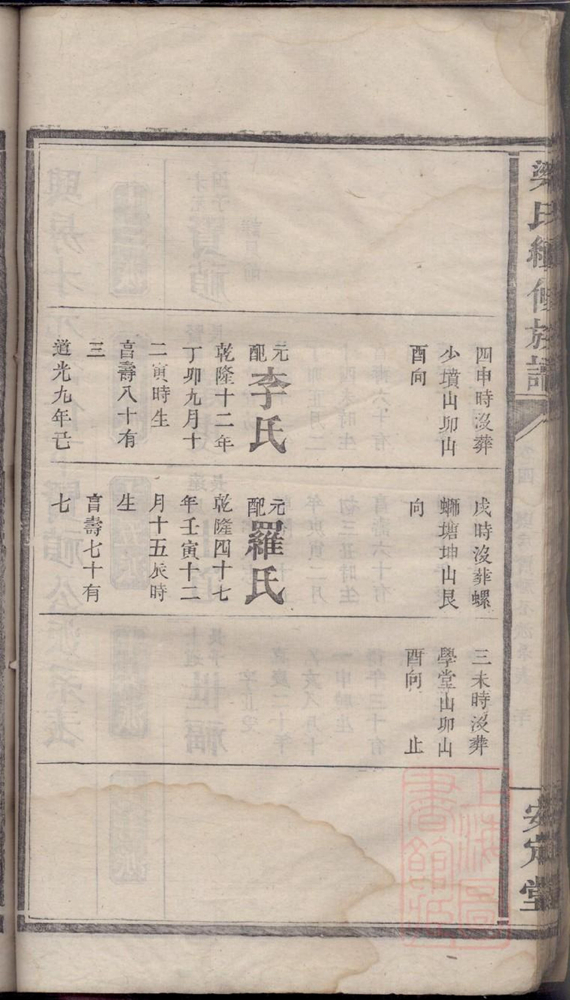 梁氏續修族譜
安定堂
四申時沒葬
少墳山卯山
酉向
元配李氏
乾隆十二年
丁卯九月十
二寅時生
亯壽八十有
三
道光九年己
戌時沒葬螺
螄塘坤山艮
向
元配羅氏
乾隆四十七
年壬寅十二
月十五辰時
生
亯壽七十有
七
三未時沒葬
學堂山卯山
酉向 止